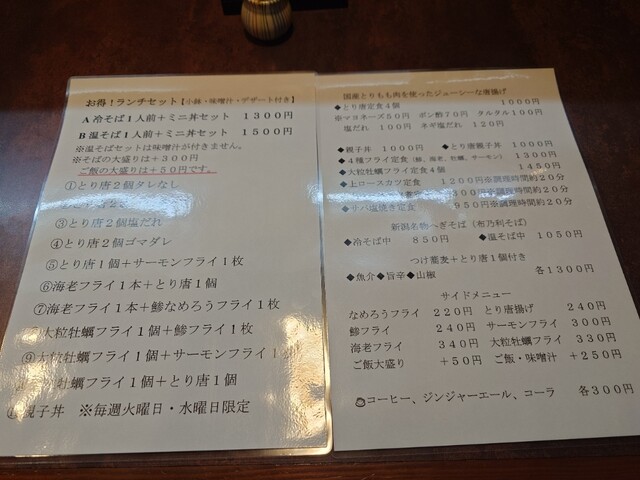 お得！ランチセット【小鉢・味噌汁・デザート付き】
A 冷そば1人前＋ミニ丼セット 1300円
B 温そば1人前＋ミニ丼セット 1500円
※温そばセットは味噌汁が付きません。
※そばの大盛りは＋300円
ご飯の大盛りは＋50円です。
①とり唐2個タレなし
②とり唐2
③とり唐2個塩だれ
④とり唐2個ゴマダレ
⑤とり唐1個＋サーモンフライ1枚
⑥海老フライ1本＋とり唐1個
⑦海老フライ1本＋鯵なめろうフライ1枚
大粒牡蠣フライ1個＋鯵フライ1枚
⑨大粒牡蠣フライ1個＋サーモンフライ1
牡蠣フライ1個＋とり唐1個
親子丼 ※毎週火曜日・水曜日限定
国産とりもも肉を使ったジューシーな唐揚げ
◆とり唐定食4個 1000円
※マヨネーズ50円 ポン酢70円 タルタル100円
塩だれ 100円 ネギ塩だれ 120円
◆親子丼 1000円 ◆とり唐親子丼 1000円
◆4種フライ定食（鯵、海老、牡蠣、サーモン） 1300円
◆大粒牡蠣フライ定食4個 1450円
◆上ロースカツ定食 1200円※調理時間約20分
300円※調理時間約20分
◆サバ塩焼き定食 950円※調理時間約20分
新潟名物へぎそば（布乃利そば）
◆冷そば中 850円 ◆温そば中 1050円
つけ蕎麦＋とり唐1個付き
◆魚介◆旨辛◆山椒 各1300円
サイドメニュー
なめろうフライ 220円 とり唐揚げ 240円
鯵フライ 240円 サーモンフライ 300円
海老フライ 340円 大粒牡蠣フライ 330円
ご飯大盛り ＋50円 ご飯・味噌汁 ＋250円
コーヒー、ジンジャーエール、コーラ 各300円